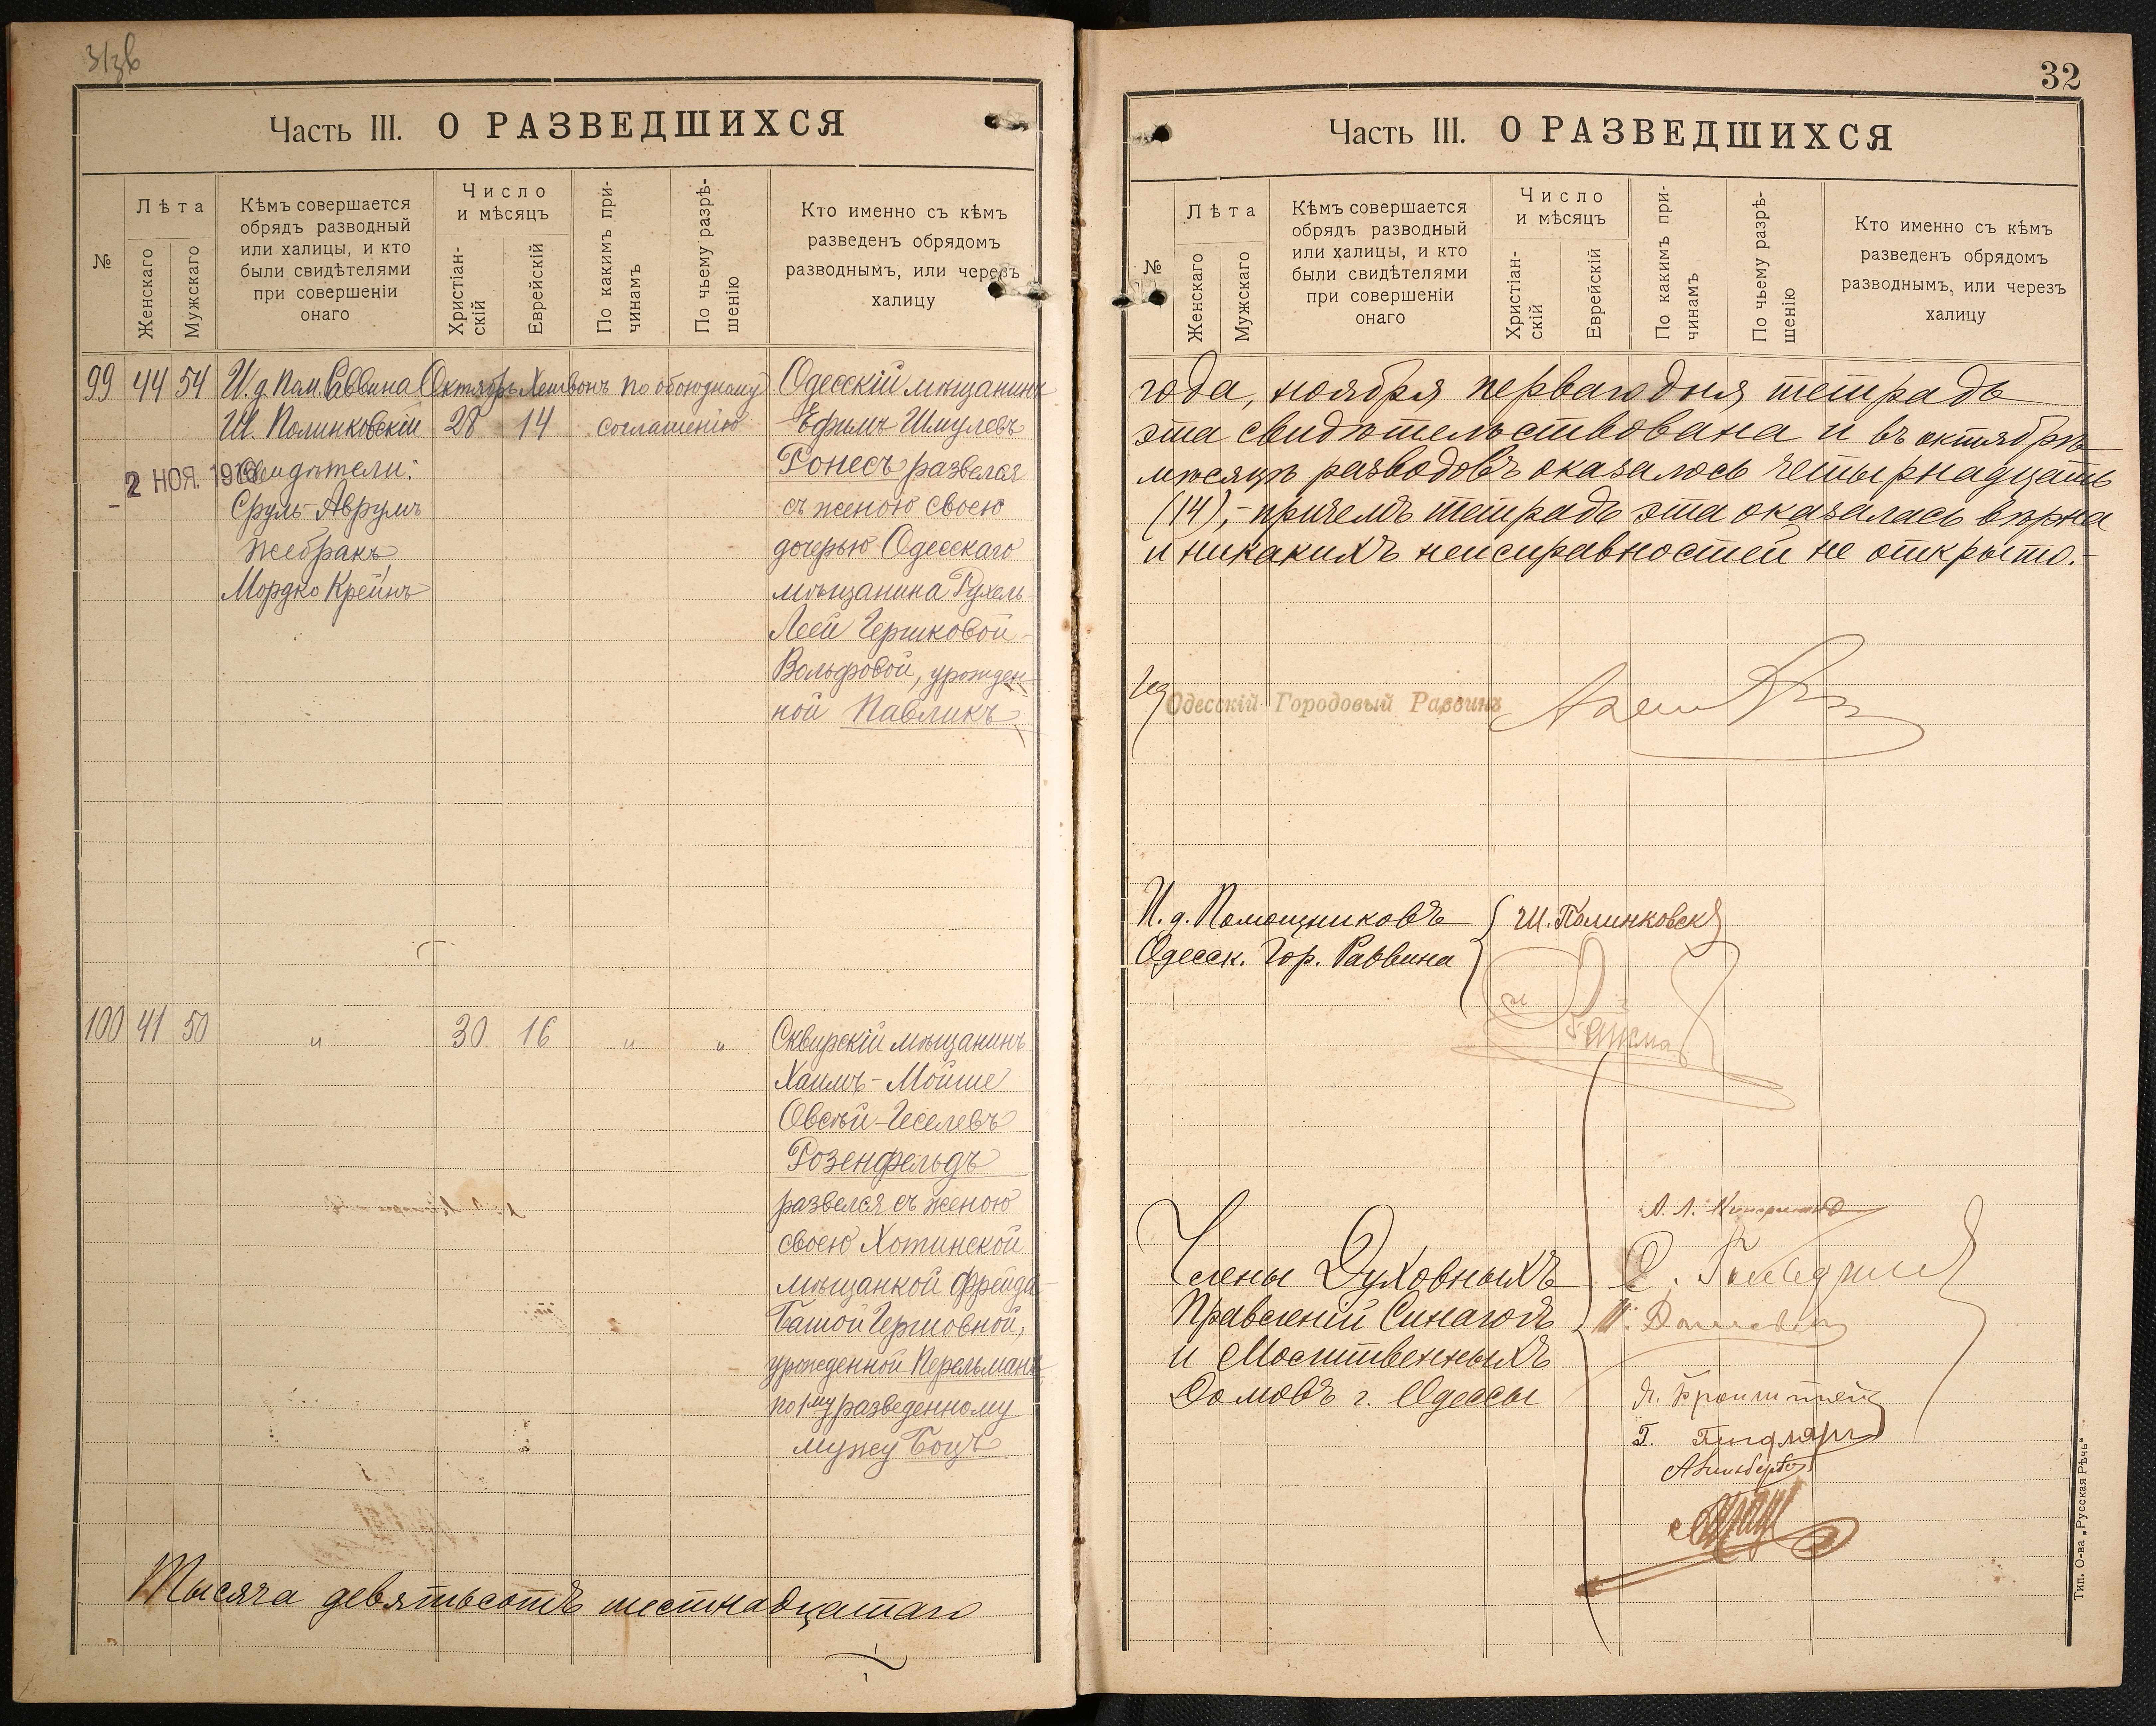 Часть III. О РАЗВЕДШИХСЯ
№
Лѣта
Женскаго
Мужскаго
Кѣмъ совершается
обрядъ разводный
или халицы, и кто
были свидѣтелями
при совершеніи
онаго
Число
и мѣсяцъ
Христіан-
скій
Еврейскій
По какимъ при-
чинамъ
По чьему разрѣ-
шенію
Кто именно съ кѣмъ
разведенъ обрядомъ
разводнымъ, или черезъ
халицу
99 44 54
И.д. Пом. Раввина
Ш. Полинковскій
2 НОЯ. 1916
Свидѣтели:
Сруль-Аврумъ
Жебракъ,
Мордко Крейнъ
Октябрь Хешвонъ
28 14
По обоюдному
соглашенію
Одесскій мѣщанинъ
Ефимъ Шмулевъ
Ронесъ развелся
съ женою своею
дочерью Одесскаго
мѣщанина Рухель
Леей Гершковой-
Вольфовой, урожден-
ной Павликъ
100 41 50 " 30 16 " "
Сквирскій мѣщанинъ
Хаимъ-Мойше
Овсѣй-Геселевъ
Розенфельдъ
развелся съ женою
своею Хотинской
мѣщанкой Фрейда-
Башой Гершовной,
урожденной Перельманъ
по 1му разведенному
мужу Боцъ
Тысяча девятьсотъ шестнадцатаго
32
Часть III. О РАЗВЕДШИХСЯ
№
Лѣта
Женскаго
Мужскаго
Кѣмъ совершается
обрядъ разводный
или халицы, и кто
были свидѣтелями
при совершеніи
онаго
Число
и мѣсяцъ
Христіан-
скій
Еврейскій
По какимъ при-
чинамъ
По чьему разрѣ-
шенію
Кто именно съ кѣмъ
разведенъ обрядомъ
разводнымъ, или черезъ
халицу
года, ноября перваго дня тетрадь
эта свидѣтельствована и въ октябрѣ
мѣсяцѣ разводовъ оказалось четырнадцать
(14),- причемъ тетрадь эта оказалась вѣрна
и никакихъ неисправностей не открыто.-
Одесскій Городовый Раввинъ
И.д. Помощниковъ
Одесск. Гор. Раввина
Ш. Полинковскі
Члены Духовныхъ
Правленій Синагогъ
и Молитвенныхъ
Домовъ г. Одессы
Тип. О-ва „Русская Рѣчь“